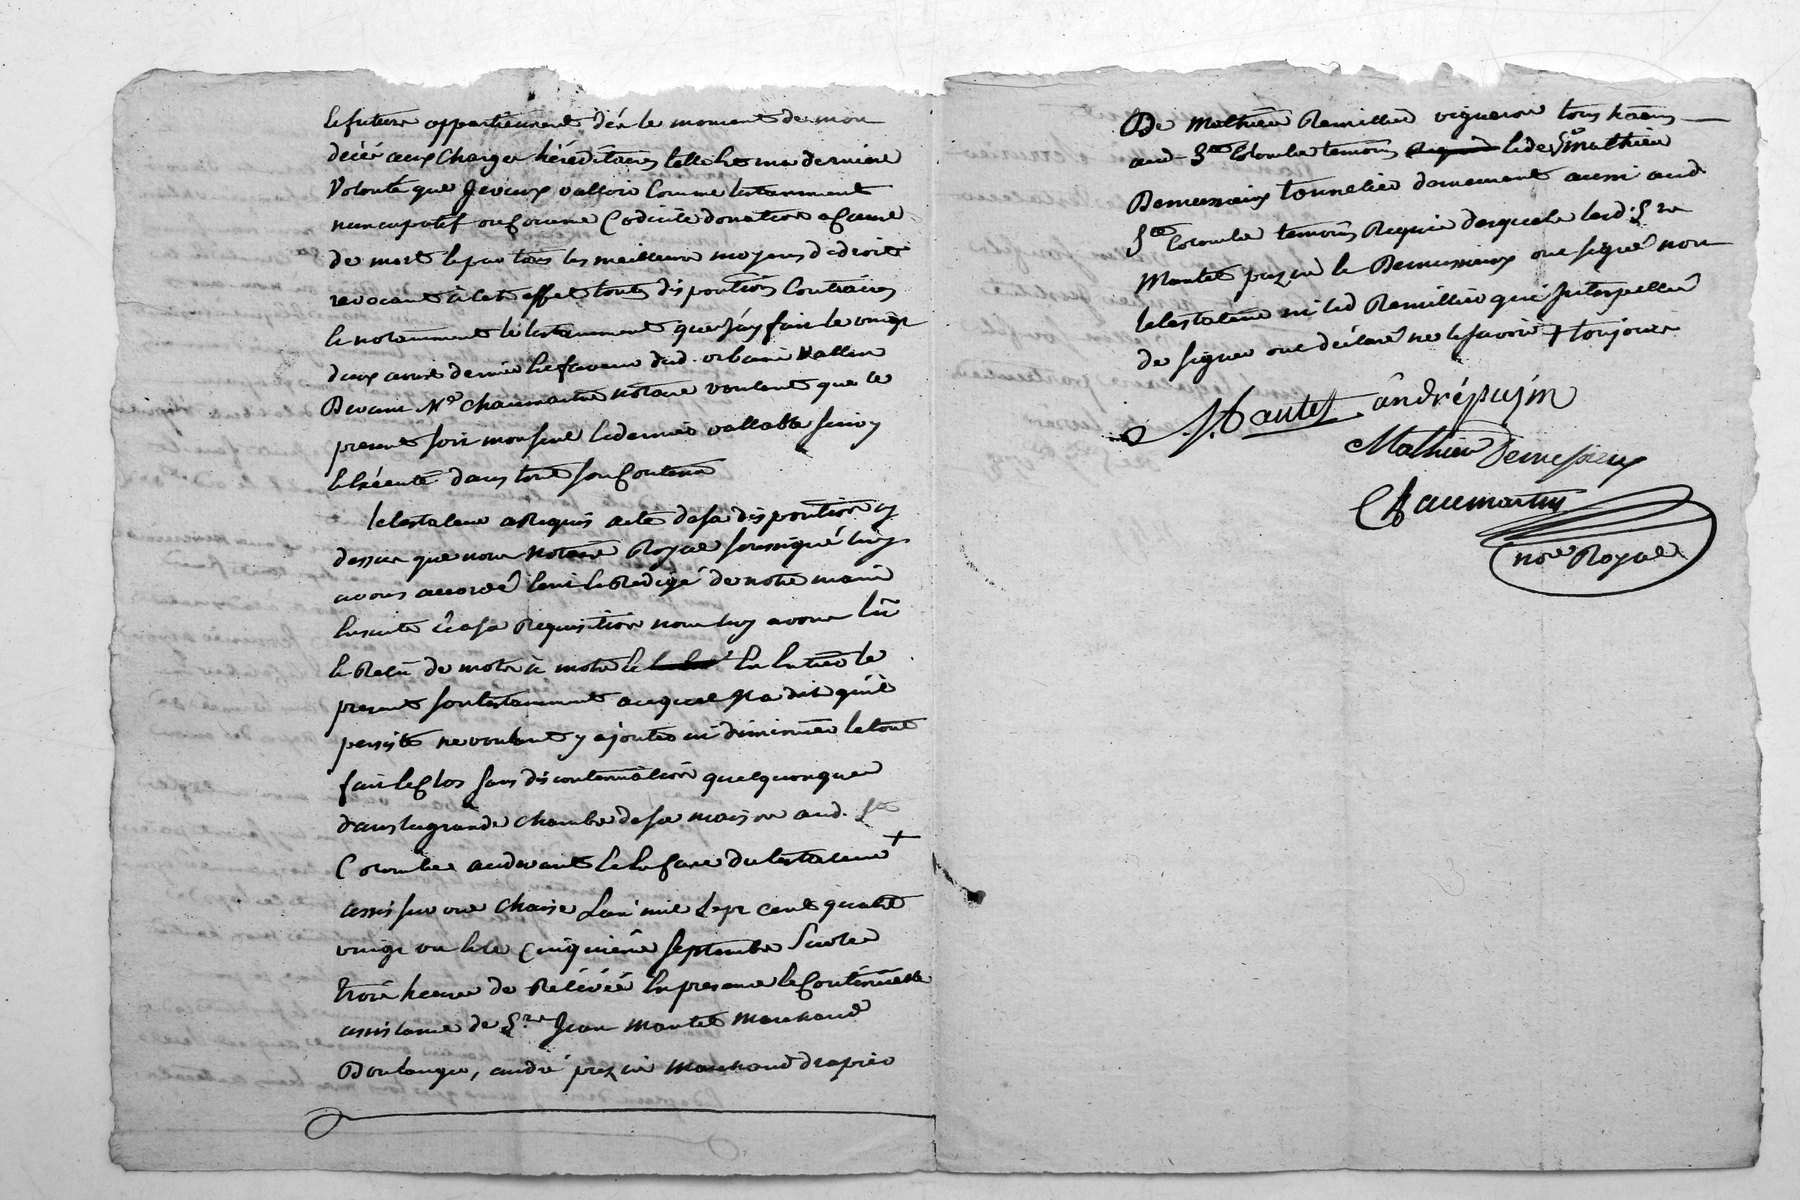 et future appartiennent dès le moment de mon
décè aux Charges héréditaires telle est ma derniere
Volonté que Je veux valloir Comme testamment
nuncupatif ou Comme Codicile donation a Cause
de mort et par tous les meilleurs moyens de droit
revocant à cet effet toutes dispositions Contraires
et notamment le testamment que J'ay fait le vingt
deux aoust dernier En faveur dud. urbain Vallin
Devant Me Chaumartin notaire voulant que le
present soit mon seul et dernier vallable suivy
et Exécuté dans tout son Contenu
le testateur a Requis acte de sa disposition cy
dessus que nous notaire Royal soussigné luy
avons accordé Ecrit et Rédigé de notre main
Ensuite à sa Requisition nous luy avons Lû
et Relû de mots à mots et En Entier le
present son testamment auquel Il a dit qu'il
persiste ne voulant y ajouter ni diminuer le tout
fait et Clos sans discontinuation quelquonque
dans la grande chambre de sa maison aud. Ste
Colombe audevant et la face du testateur +
assis sur une chaise L'an mil sept cent quatre
vingt un et le Cinquieme septembre sur les
trois heures de Rélévée En presence et Continuelle
assistance de Sr Jean Mantel Marchand
Boulanger, andré puzin Marchand drapier
De Mathieu Remillier vigneron tous habitans
aud. Ste Colombe temoins et de Sr Mathieu
Demessieux tonnelier demeurant aussi aud.
Ste Colombe temoins Requis desquels lesd. Srs
Mantel puzin et Demessieux ont signé non
le testateur ni led Remillier qui Interpellés
de signer ont déclaré ne le savoir + toujours
J. Mantel andré puzin
Mathieu Demessieux
Chaumartin
nore Royal